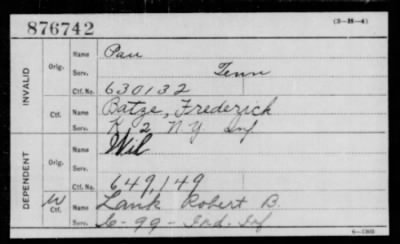 876742
(3-38-4)
INVALID
Orig.
Name Pau
Serv. Tenn
Ctf. No. 630132
Ctf.
Name Batze, Frederick
Serv. K 2 N.Y. Inf
DEPENDENT
Orig.
Name Wil
Serv.
Ctf. No. 649,149
W
Ctf.
Name Lank Robert B.
Serv. 99 - Ind. Inf